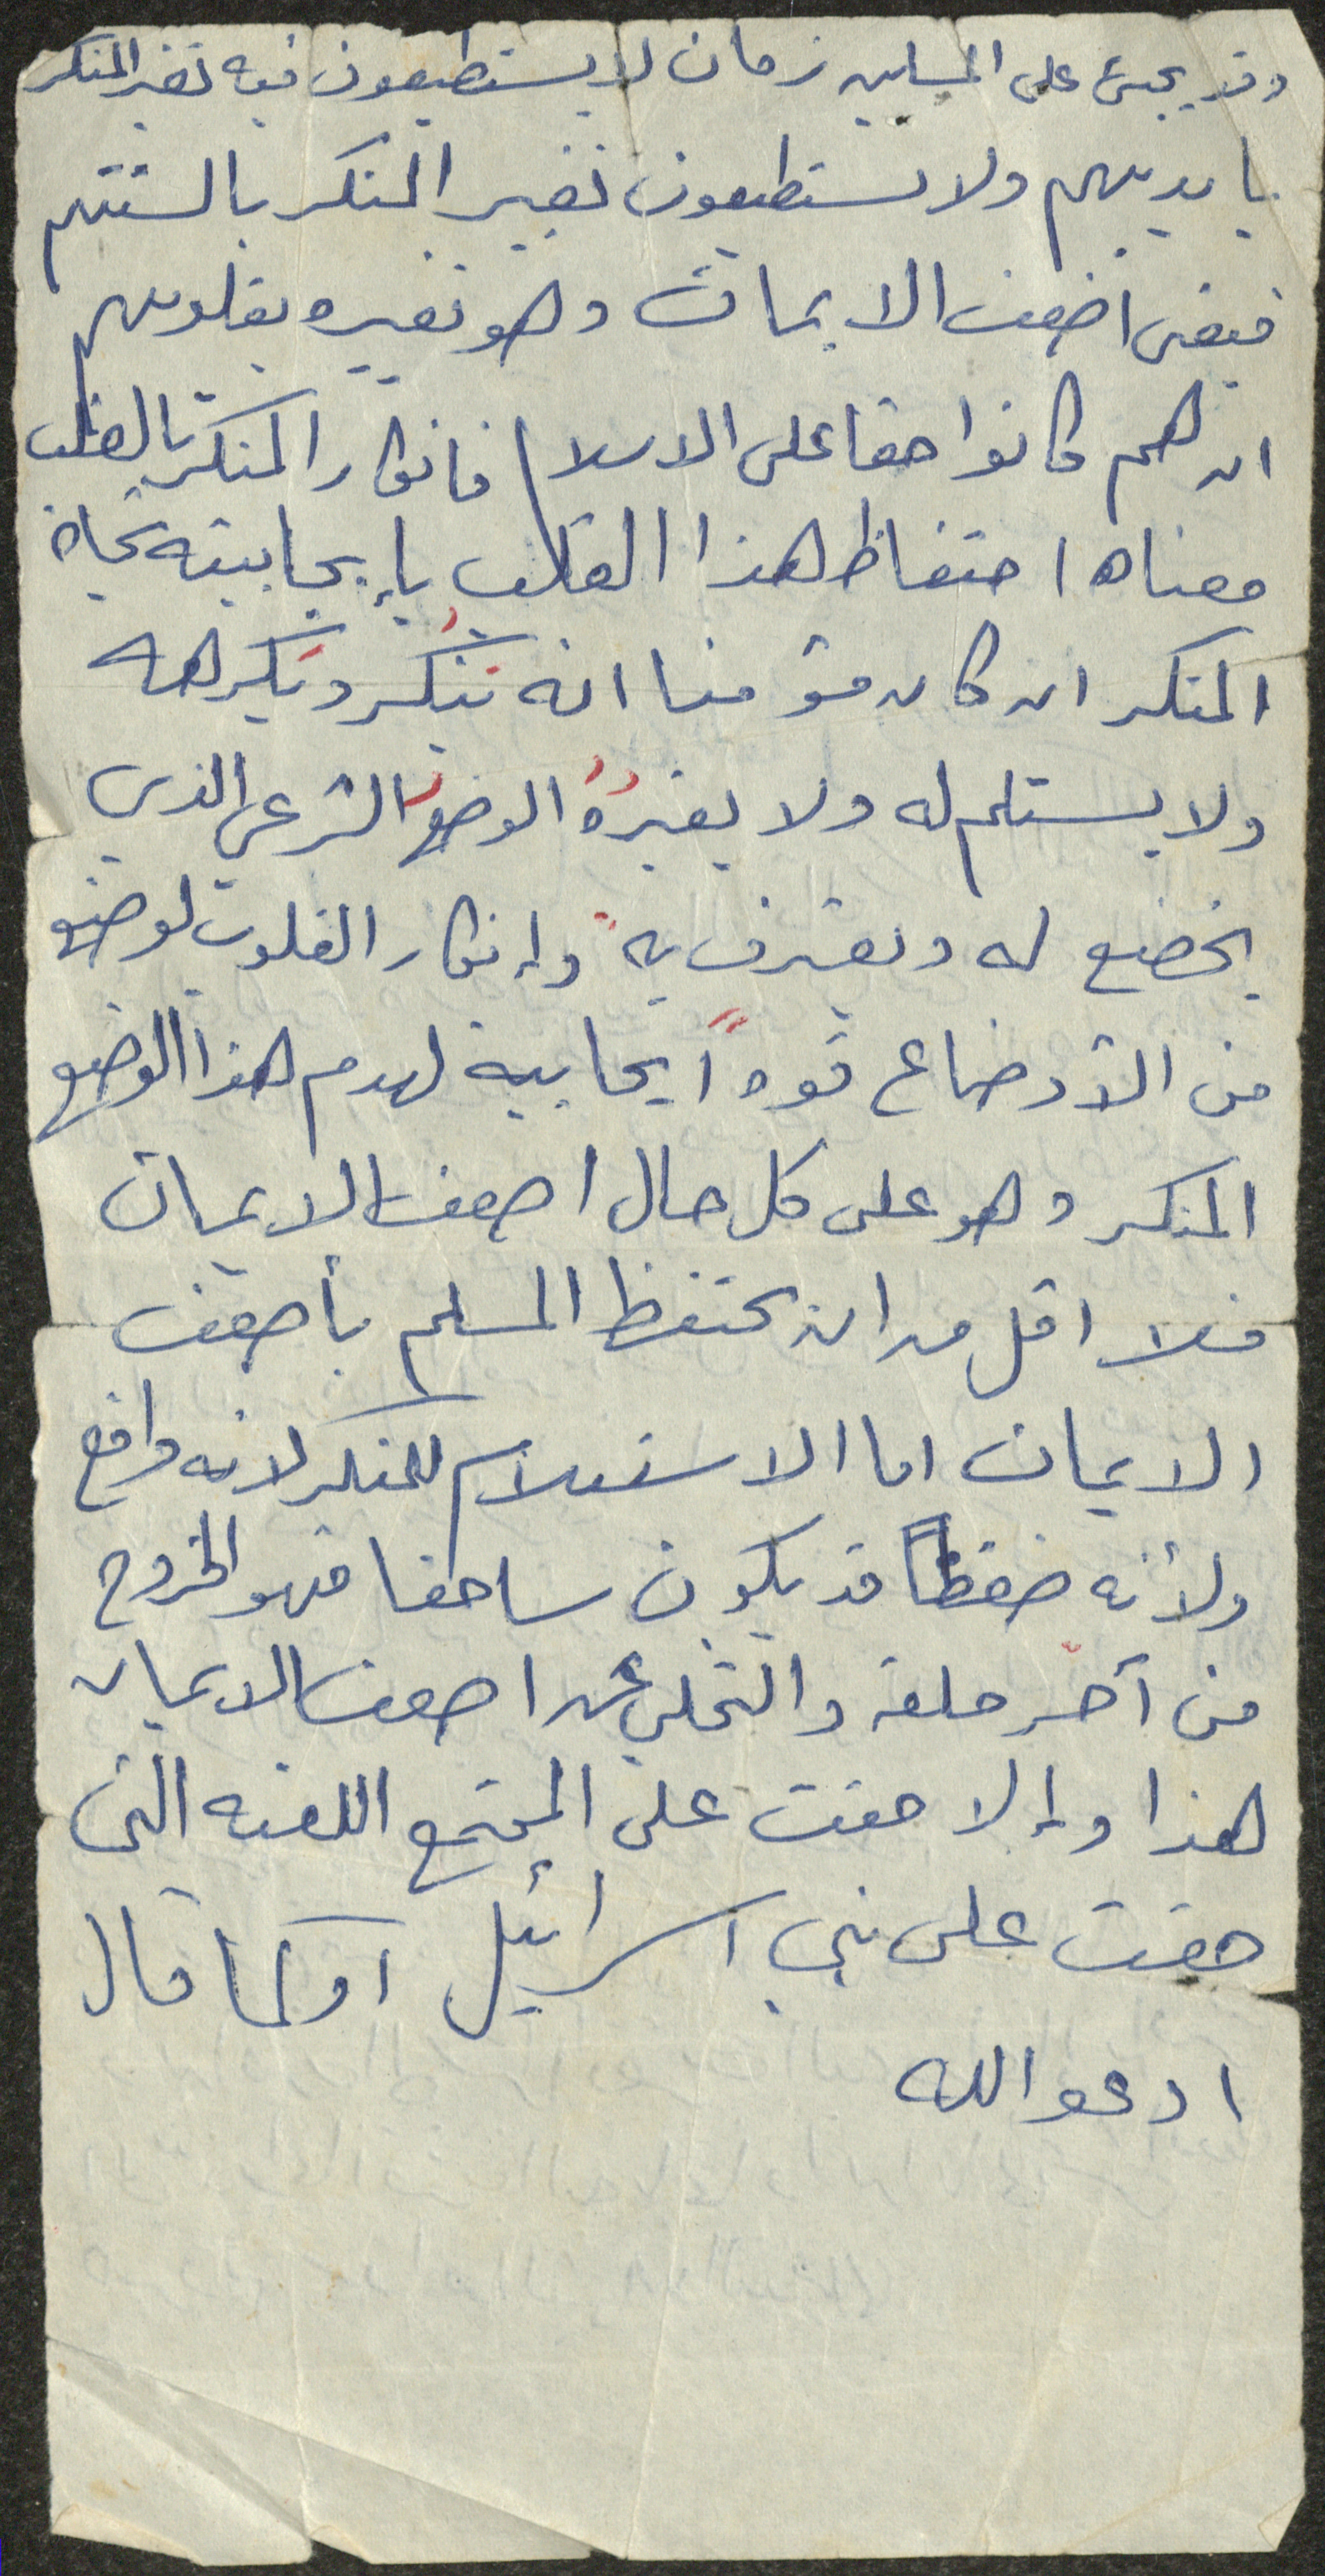 وقد يجئ على المسلمين زمان لا يستطيعون فيه تغيير المنكر
بايديهم ولا يستطيعون تغيير المنكر بالسنتهم
فيبقى اضعف الايمان وهو تغييره بقلوبهم
ان هم كانوا حقا على الاسلام فانكار المنكر بالقلب
معناه احتفاظ هذا القلب بإيجابيته تجاه
المنكر ان كان مؤمنا انه يَنكُر ويَكرهه
ولا يستسلم له ولا يعتبرهُ الوضعَ الشرعي الذي
يخضع له ويعترف به وإنكار القلوب لوضع
من الأوضاع قوةً ايجابية لهدم هذا الوضع
المنكر وهو على كل حال اضعف الايمان
فلا اقل من ان يحتفظ المسلم بأضعف
الايمان اما الاستسلام للمنكر لانه واقع
ولأنه ضغطاً قد يكون ساحقا فهو الخروج
من آخر حلقة والتخلي عن اضعف الايمان
هذا وإلا حقت على المجتمع اللعنه التى
حقت على بني اسرائيل او كما قال
ادعو الله